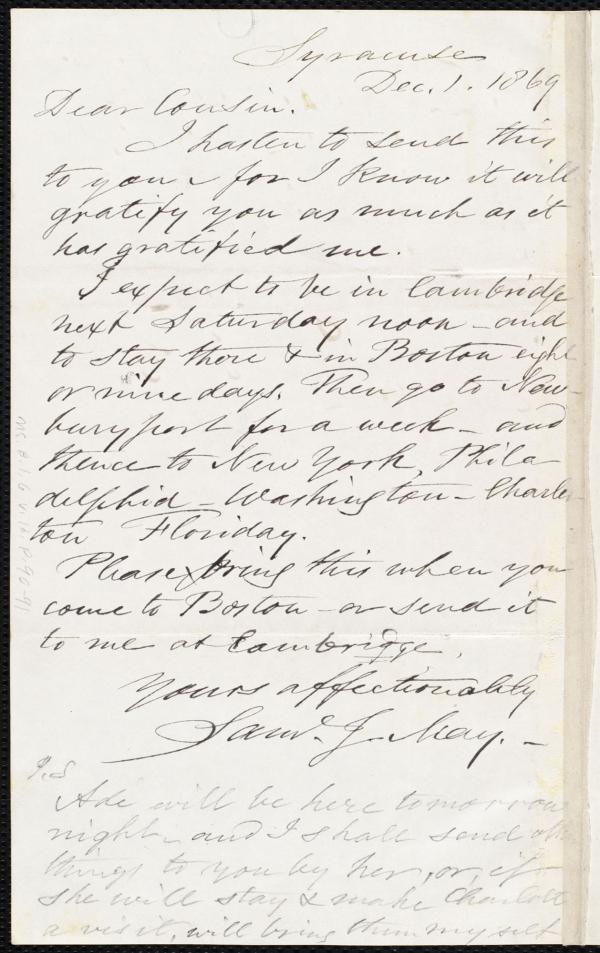 Syracuse
Dec. 1. 1869
Dear Cousin.
I hasten to send this
to you - for I know it will
gratify you as much as it
has gratified me.
I expect to be in Cambridge
next Saturday noon - and
to stay there & in Boston eight
or nine days. Then go to New-
buryport for a week - and
thence to New York, Phila
delphia - Washington - Charles-
ton Floriday.
Please bring this when you
come to Boston - or send it
to me at Cambridge.
Yours affectionately
Saml. J. May. -
P.S
Ade will be here tomorrow
night - and I shall send other
things to you by her, or, if
she will stay & make Charlotte
a visit, will bring them myself
Ms. B.1.6 v.10. p.90-91